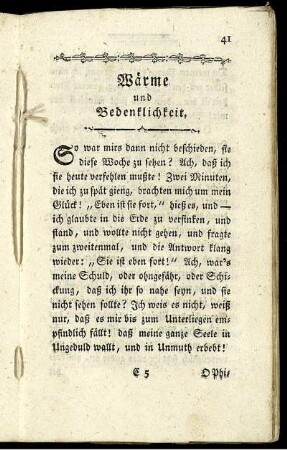 41
Wärme
und
Bedenklichkeit.
So war mirs dann nicht beschieden, sie
diese Woche zu sehen? Ach, daß ich
sie heute verfehlen mußte! Zwei Minuten,
die ich zu spät gieng, brachten mich um mein
Glück! „Eben ist sie fort,“ hieß es, und —
ich glaubte in die Erde zu versinken, und
stand, und wollte nicht gehen, und fragte
zum zweitenmal, und die Antwort klang
wieder: „Sie ist eben fort!“ Ach, war's
meine Schuld, oder ohngefähr, oder Schi-
ckung, daß ich ihr so nahe seyn, und sie
nicht sehen sollte? Ich weis es nicht, weiß
nur, daß es mir bis zum Unterliegen em-
pfindlich fällt! daß meine ganze Seele in
Ungeduld wallt, und in Unmuth erbebt!
C 5 O Phi-